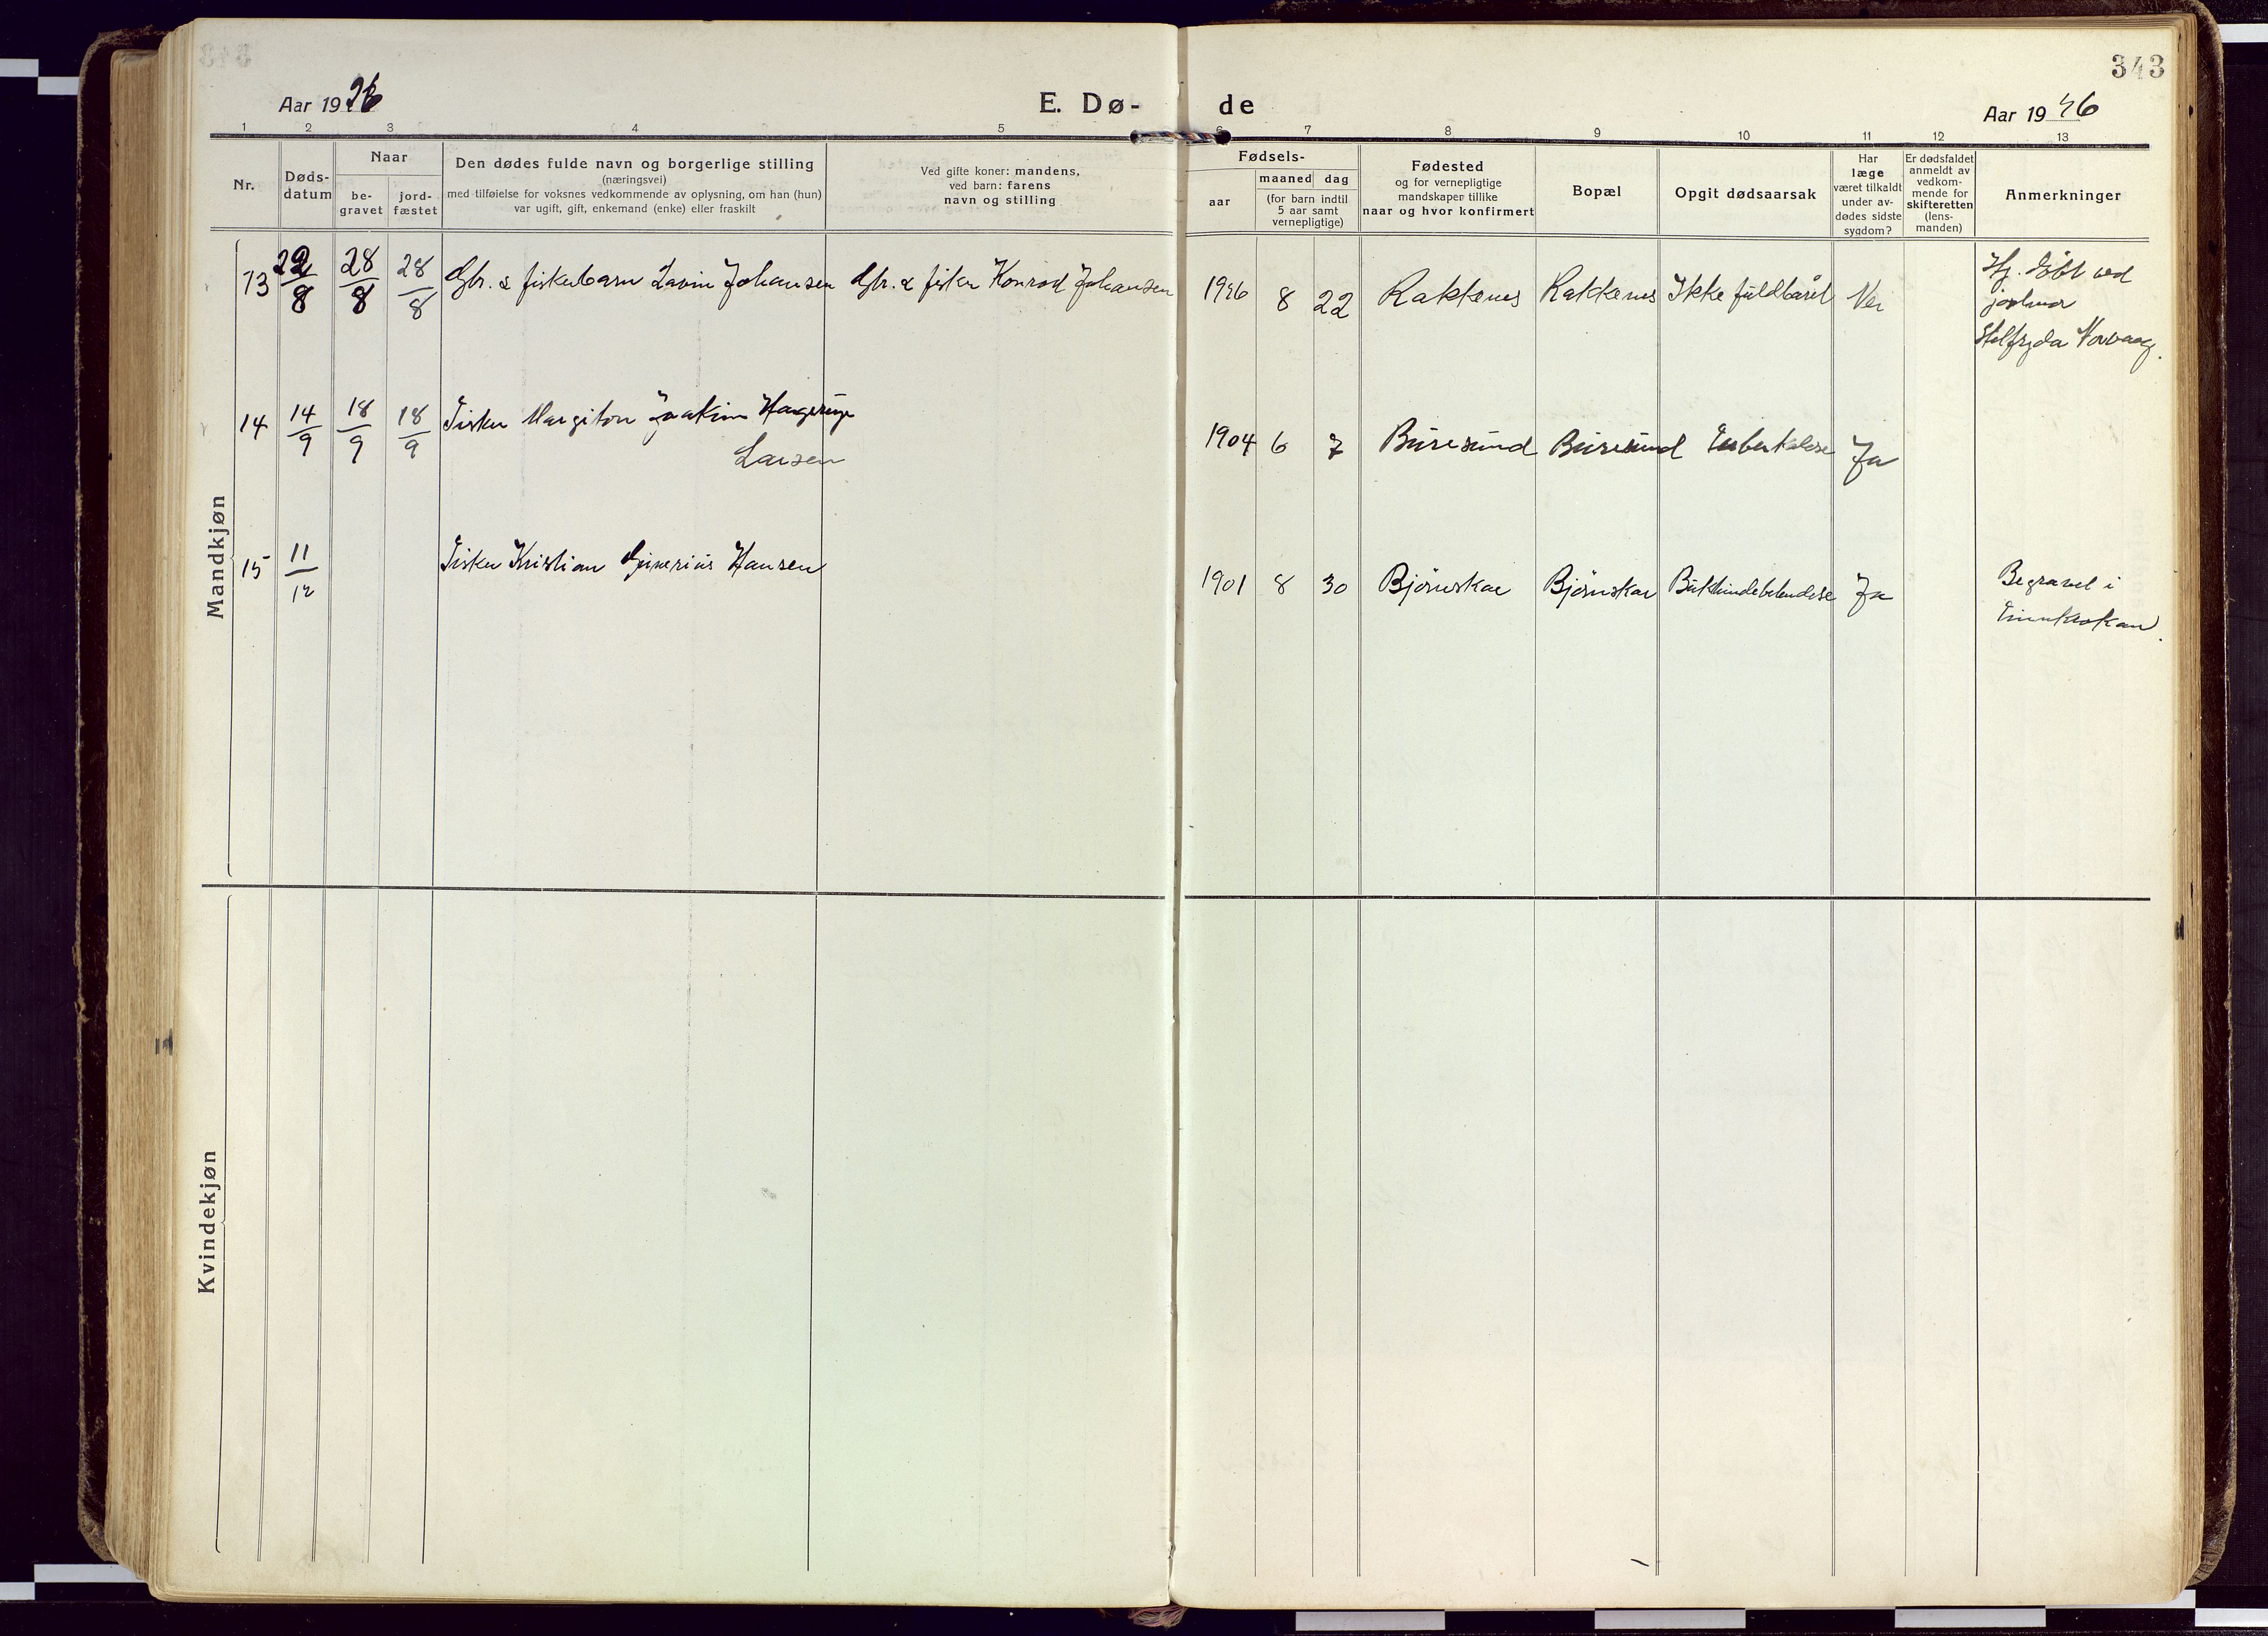 343
Aar 1926
E. Dø-
de
Aar 1926
1 2 3 4 5 6 7 8 9 10 11 12 13
Nr.
Døds-
datum
Naar
be-
gravet
jord-
fæstet
Den dødes fulde navn og borgerlige stilling
(næringsvei)
med tilføielse for voksnes vedkommende av oplysning, om han (hun)
var ugift, gift, enkemand (enke) eller fraskilt
Ved gifte koner: mandens,
ved barn: farens
navn og stilling
Fødsels-
aar
maaned dag
(for barn indtil
5 aar samt
vernepligtige)
Fødested
og for vernepligtige
mandskaper tillike
naar og hvor konfirmert
Bopæl
Opgit dødsaarsak
Har
læge
været tilkaldt
under av-
dødes sidste
sygdom?
Er dødsfaldet
anmeldt av
vedkom-
mende for
skifteretten
(lens-
manden)
Anmerkninger
Mandkjøn
13 22/8 28/8 28/8 Gbr. & fiskerbarn Lavin Johansen Gbr. & fisker Konrad Johansen 1926 8 22 Rakkenes Rakkenes Ikke fuldbåret Nei Hj. døbt ved
jordmor
Norvaag.
14 14/9 18/9 18/9 Fisker Margiton Joakim Hagerup
Larsen
1904 6 7 Buresund Buresund Tuberkulose Ja
15 11/12 Fisker Kristian Hansen 1901 8 30 Bjørnskar Bjørnskar Ja Begravet i
Kvindekjøn